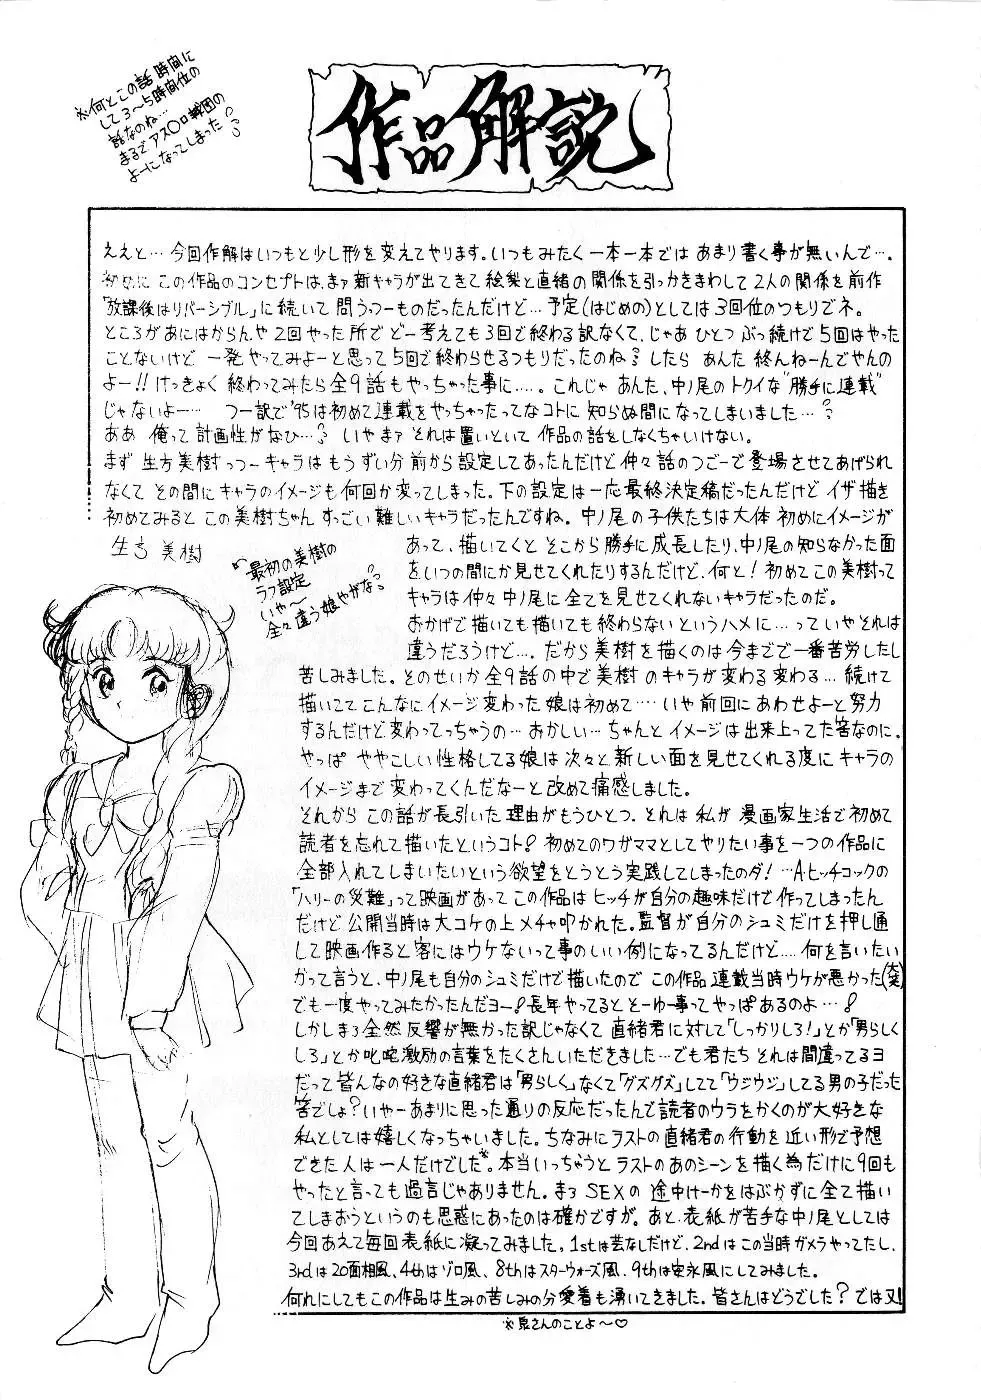 ※何とこの話 時間に
して3〜5時間位の
話なのね…
まるでアス〇ロ戦団の
よーになってしまった
作品解説
ええと… 今回作解はいつもと少し形を変えてやります。いつもみたく一本一本では あまり書く事が無いんで…。
初めに この作品のコンセプトは、まァ新キャラが出てきて 絵梨と直緒の関係を引っかきまわして2人の関係を前作
「放課後はリバーシブル」に続いて 問うつーものだったんだけど… 予定(はじめの)としては3回位のつもりでネ。
ところがあにはからんや 2回やった所で どー考えても3回で終わる訳なくて、じゃあ ひとつ ぶっ続けで5回はやった
ことないけど 一発やってみよーと思って5回で終わらせるつもりだったのね したら あんた 終んねーんでやんの
よー!! けっきょく 終わってみたら全9話もやっちゃった事に…‥。 これじゃ あんた、中ノ尾のトクイな"勝手に連載"
じゃないよー… つー訳で'95は初めて連載をやっちゃったってなコトに 知らぬ間になってしまいました…
ああ 俺って計画性がなひ… いやまァ それは置いといて 作品の話をしなくちゃいけない。
まず 生方美樹っつーキャラは もうずい分前から設定してあったんだけど 仲々話のつごーで登場させてあげられ
なくて その間にキャラのイメージも何回か変ってしまった。下の設定は一応最終決定稿だったんだけど イザ描き
初めてみると この美樹ちゃん すっごい難しいキャラだったんですね。中ノ尾の子供たちは大体 初めにイメージが
生方 美樹
最初の美樹の
ラフ設定
いや〜
全々違う娘やがな
あって、描いてくと そこから勝手に成長したり、中ノ尾の知らなかった面
をいつの間にか見せてくれたりするんだけど、何と! 初めてこの美樹って
キャラは仲々 中ノ尾に全てを見せてくれないキャラだったのだ。
おかげで描いても描いても終わらないというハメに…って いやそれは
違うだろうけど…. だから美樹を描くのは今までで一番苦労したし
苦しみました。そのせいか全9話の中で美樹 のキャラが変わる変わる… 続けて
描いてて こんなにイメージ変わった 娘は初めて… いや 前回にあわせよーと努力
するんだけど変わってっちゃうの… おかしい… ちゃんとイメージは出来上ってた筈なのに。
やっぱ ややこしい性格してる娘は 次々と新しい面を見せてくれる度に キャラの
イメージまで変わってくんだなーと 改めて痛感しました。
それから この話が長引いた理由がもうひとつ. それは 私が 漫画家生活で初めて
読者を忘れて描いたというコト! 初めてのワガママとしてやりたい事を一つの作品に
全部入れてしまいたいという欲望をとうとう実践してしまったのダ! …A.ヒッチコックの
「ハリーの災難」って映画があって この作品は ヒッチが自分の趣味だけで作ってしまったん
だけど 公開当時は大コケの上メチャ叩かれた。監督が自分のシュミだけを押し通
して映画作ると客にはウケないって事のいい例になってるんだけど…. 何を言いたい
かって言うと、中ノ尾も自分のシュミだけで描いたので この作品 連載当時ウケが悪かった(大笑)
でも一度やってみたかったんだヨー! 長年やってると とーゆー事ってやっぱあるのよ…!
しかしまァ全然反響が無かった訳じゃなくて 直緒君に対して「しっかりしろ!」とか「男らしく
しろ」とか叱咤激励の言葉をたくさんいただきました…でも君たち それは間違ってるヨ
だって皆んなの好きな直緒君は「男らしく」なくて「グズグズ」してて「ウジウジ」してる男の子だった
筈でしょ? いやーあまりに思った通りの反応だったんで読者のウラをかくのが大好きな
私としては嬉しくなっちゃいました。ちなみにラストの直緒君の行動を近い形で予想
できた人は一人だけでした※。本当いっちゃうと ラストのあのシーンを描く為だけに9回も
やったと言っても過言じゃありません。まァ SEXの途中けーかをはぶかずに全て描い
てしまおうというのも思惑にあったのは確かですが。あと、表紙が苦手な中ノ尾としては
今回あえて毎回表紙に凝ってみました。1stは芸なしだけど、2ndはこの当時ガメラやってたし、
3rdは20面相風、4thはゾロ風、8thはスターウォーズ風、9thは安永風にしてみました。
何れにしてもこの作品は生みの苦しみの分愛着も湧いてきました。皆さんはどうでした? では又!
※泉さんのことよ〜♡